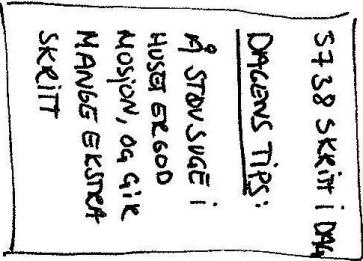 5738 SKRITT I DAG
DAGENS TIPS:
Å STØVSUGE I
HUSET ER GOD
MOSJON, OG GIR
MANGE EKSTRA
SKRITT